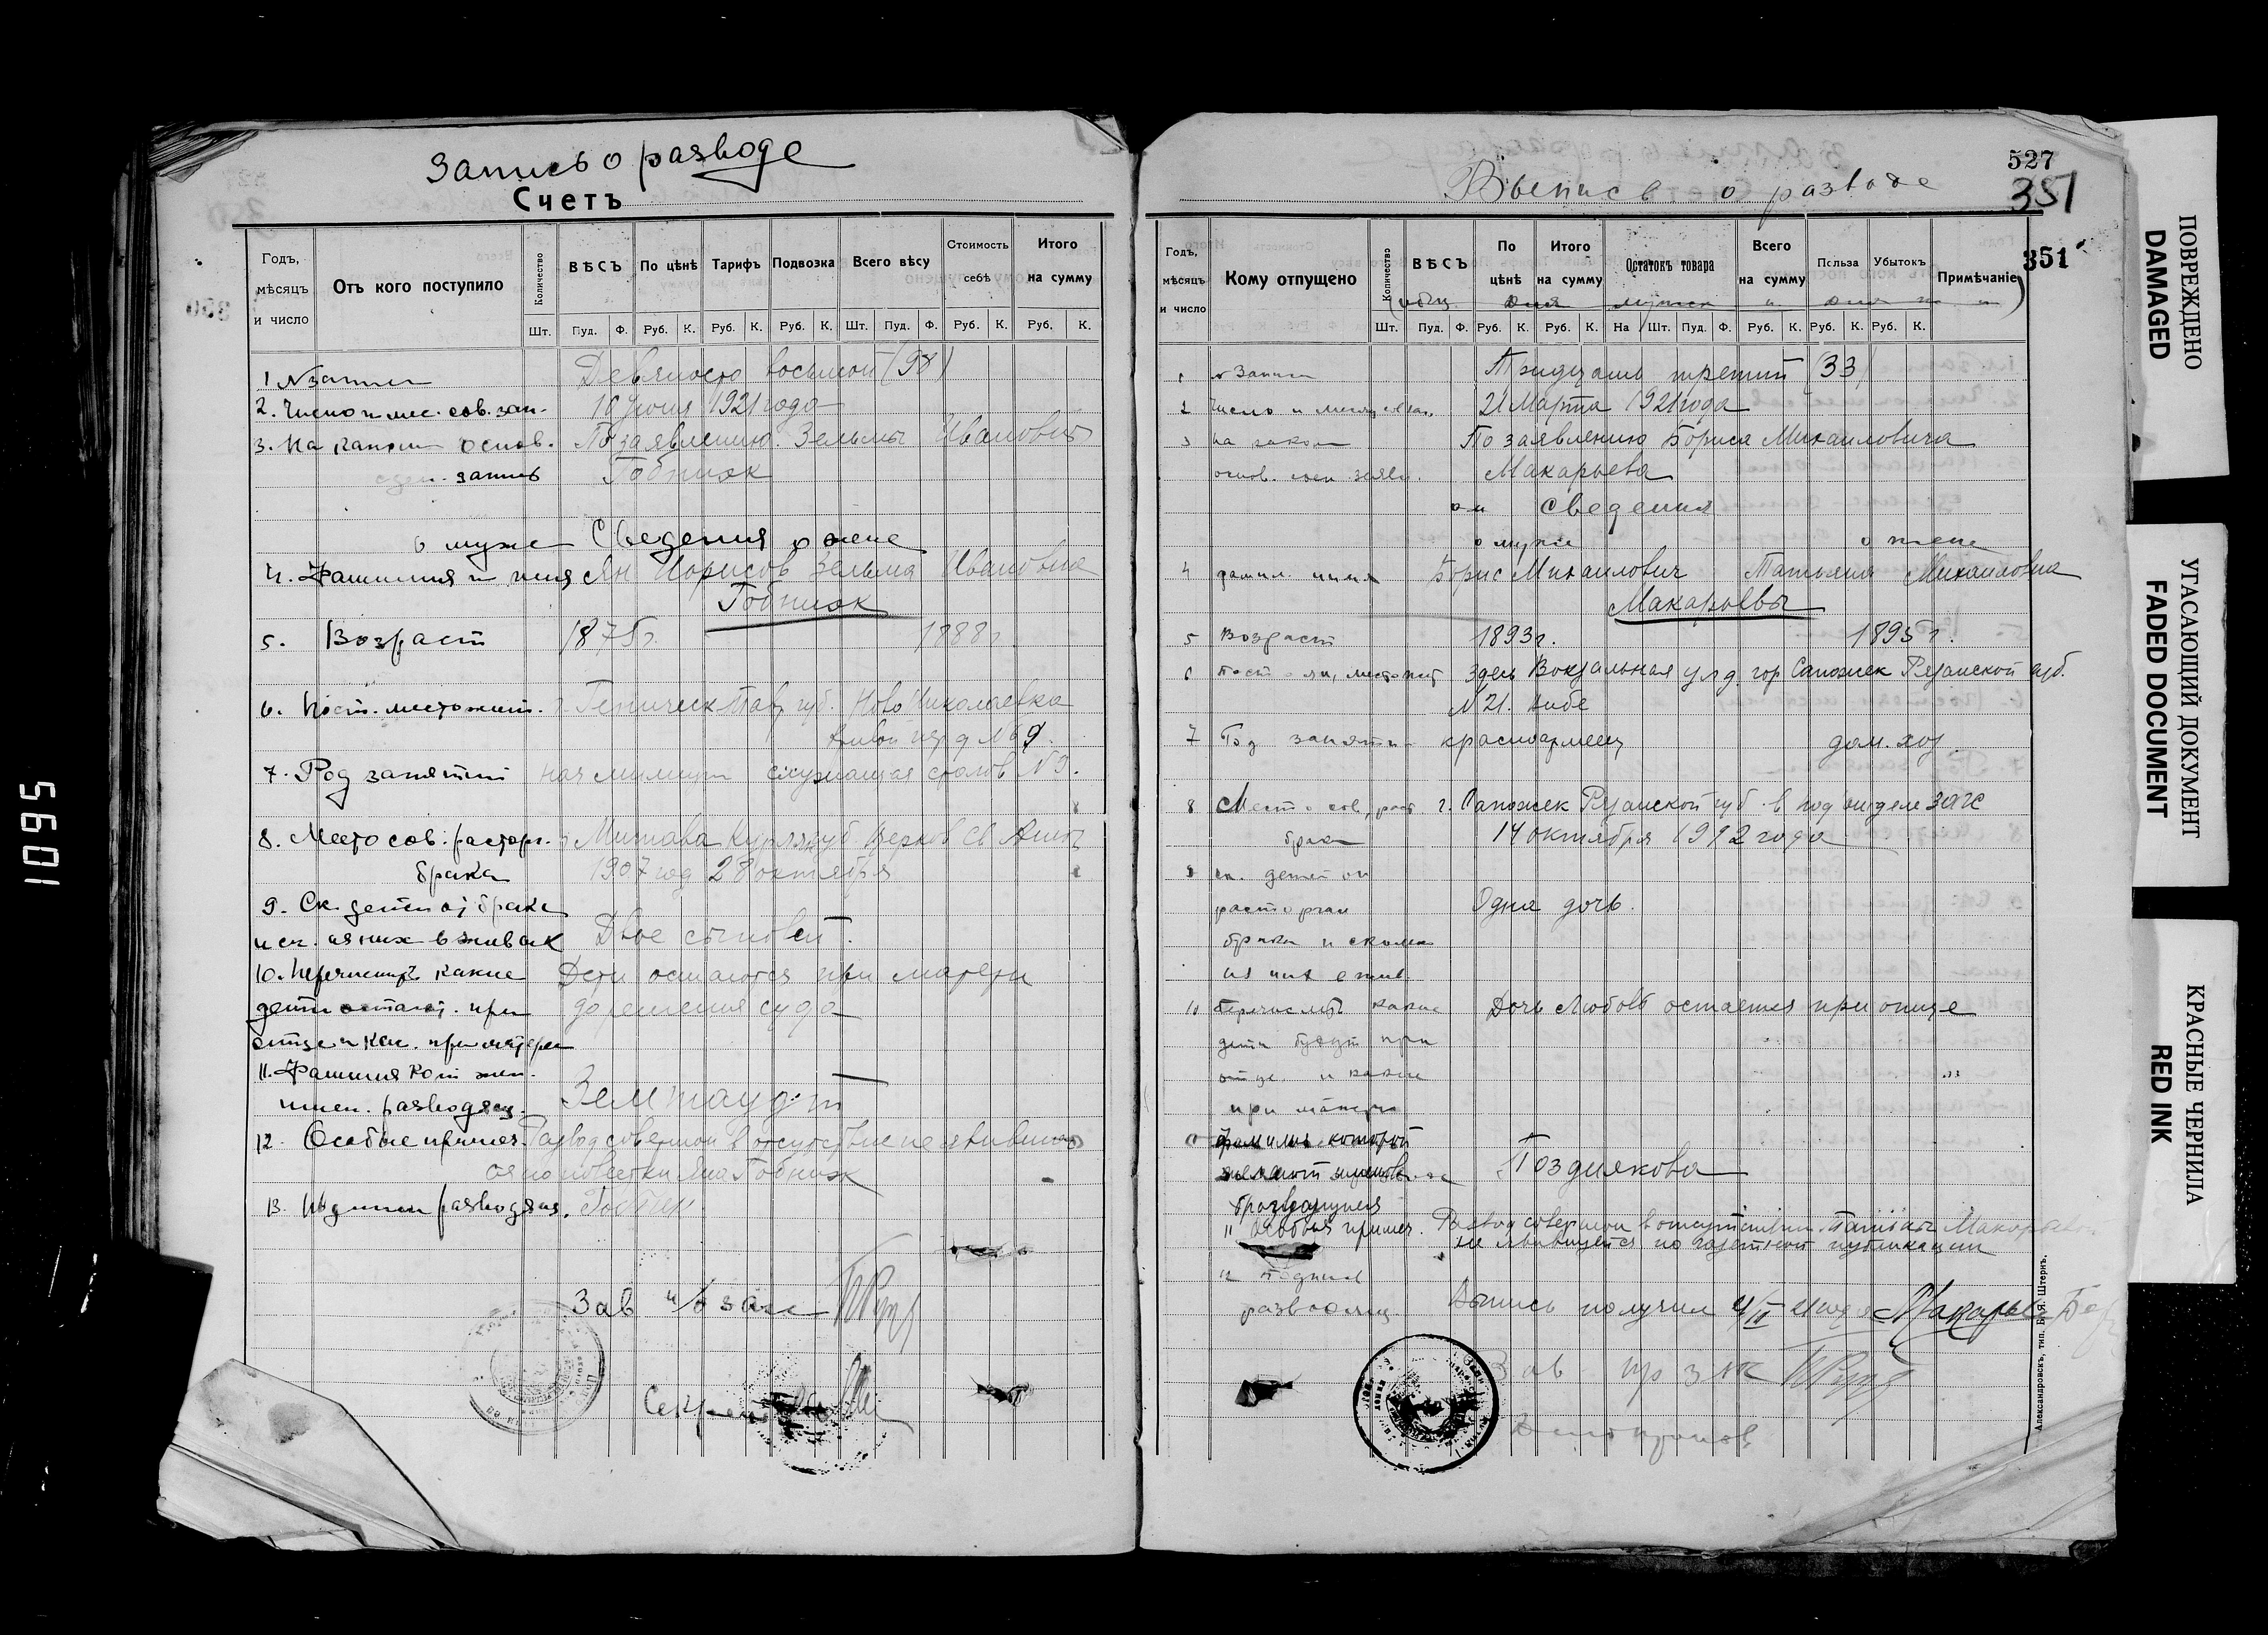 Запись о разводе
Счетъ
Годъ, мѣсяцъ и число
Отъ кого поступило
Количество
ВѢСЪ
По цѣнѣ
Тарифъ
Подвозка
Всего вѣсу
Стоимость себѣ
Итого на сумму
Шт. Пуд. Ф. Руб. К. Руб. К. Руб. К. Шт. Пуд. Ф. Руб. К. Руб. К.
1 № записи Девяносто восьмой (98)
2. Число и мес. сов. зап. 16 Июня 1921 года
3. На каком основ. По заявлению Зельмы Ивановны
запись Гобниэк
о муже Сведения о жене
4. Фамилия и имя Ян Зельма Ивановна
Гобниэк
5. Возраст 1875 г. 1888 г.
6. Пост. местожит. г. Геническ Тав. губ. Ново Николаевка
7. Род занятий нач милиции служащая столов
8. Место сов. расторг. Митава Курлянд губ церков Св Анны
брака 1907 год 28 октября
9. Ск. детей от брака
и ск. из них в живых Двое сыновей.
10. Перечислить какие Дети остаются при матери
дети остают. при до решения суда
отце и как. при матери
11. Фамилия кот. жел.
имен. разводящ. Земтаудт
12. Особые примеч. Развод совершон в отсутствие не явившаго
ся по повестки Яна Гобниэк
13. Подписи разводящ.
Зав п/о загс
Секрет
527
351
351
Выпись о разводе
Годъ, мѣсяцъ и число
Кому отпущено
Количество
ВѢСЪ
По цѣнѣ
Итого на сумму
Остатокъ товара
Всего на сумму
Польза
Убытокъ
Примѣчаніе
Шт. Пуд. Ф. Руб. К. Руб. К. На Шт. Пуд. Ф. Руб. К. Руб. К. Руб. К.
1 № записи Тридцать третий (33)
2 Число и месяц 21 Марта 1921 года
3 на каком По заявлению Бориса Михаиловича
основ. Макарьева
Сведения
о муже о жене
4 фамил. имя Борис Михаилович Татьяна Михаиловна
Макарьевы
5 Возраст 1893 г. 1895 г.
6 здесь Вокзальная ул д. гор Сапожек Рязанской губ.
№ 21.
7 Род занятий красноармеец дом. хоз.
8 Место сов. раст г. Сапожек Рязанской губ в под отделе загс
брака 14 октября 1912 года
9 ск. детей от
расторган Одна дочь.
брака и сколько
из них в жив.
10 Перечислить какие Дочь Любовь остается при отце
дети будут при
отце и какие
при матери
фамилия которой
желают именов Позднякова
разводящиеся
11 Особыя примеч. Развод совершон в отсутствии Татьяны Макарьевой
не явившейся по газетной публикации
12 подписи
разводящ Выпись получил
Зав п/о загс
Александровскъ, тип. Б. Я. Штернъ.
1095
ПОВРЕЖДЕНО
DAMAGED
УГАСАЮЩИЙ ДОКУМЕНТ
FADED DOCUMENT
КРАСНЫЕ ЧЕРНИЛА
RED INK